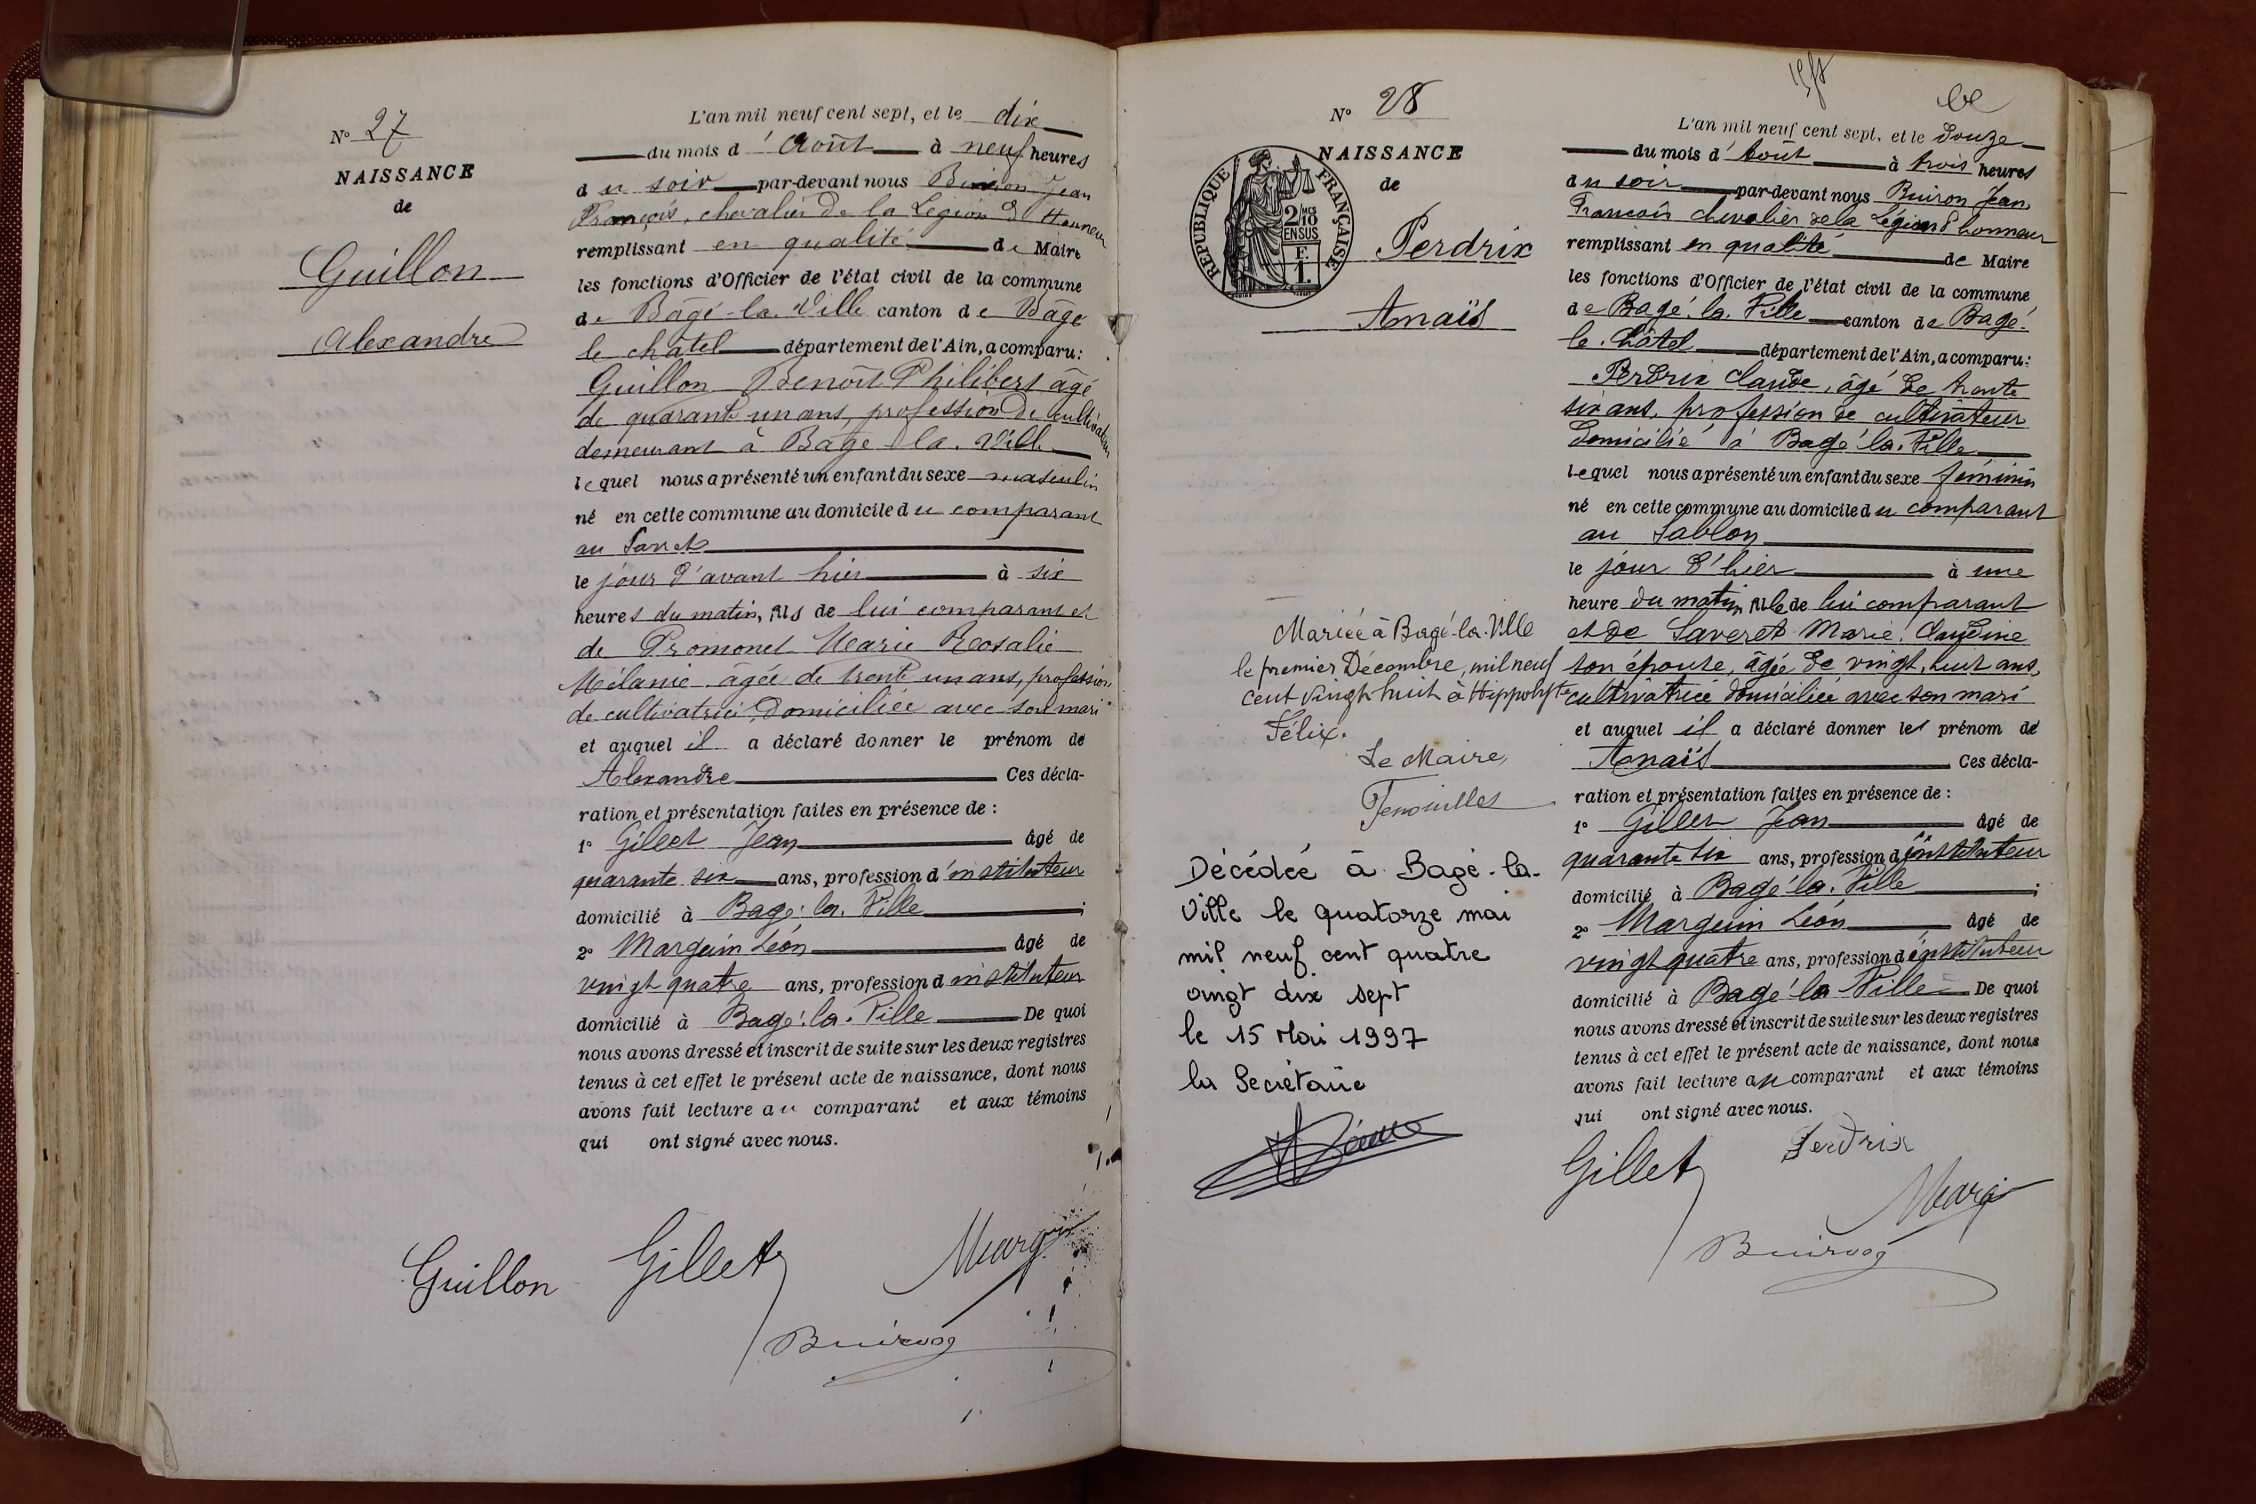 N° 27
NAISSANCE
de
Guillon
Alexandre
L'an mil neuf cent sept, et le dix
du mois d'Août à neuf heures
du soir par-devant nous Buiron Jean
François, chevalier de la Légion d'Honneur
remplissant en qualité de Maire
les fonctions d'Officier de l'état civil de la commune
de Bâgé-la-Ville canton de Bâgé
le châtel département de l'Ain, a comparu:
Guillon Benoît Philibert âgé
de quarante un ans, profession de cultivateur
demeurant à Bâgé la Ville
lequel nous a présenté un enfant du sexe masculin
né en cette commune au domicile du comparant
au
le jour d'avant hier à six
heures du matin, fils de lui comparant et
de Promonet Marie Rosalie
Mélanie âgée de trente un ans, profession
de cultivatrice, domiciliée avec son mari
et auquel il a déclaré donner le prénom de
Alexandre Ces décla-
ration et présentation faites en présence de :
1° Gillet Jean âgé de
quarante six ans, profession d'instituteur
domicilié à Bagé-la-Ville ;
2° Marguin Léon âgé de
vingt quatre ans, profession d'instituteur
domicilié à Bagé-la-Ville De quoi
nous avons dressé et inscrit de suite sur les deux registres
tenus à cet effet le présent acte de naissance, dont nous
avons fait lecture au comparant et aux témoins
qui ont signé avec nous.
Guillon Gillet Marguin
Buiron
N° 28
NAISSANCE
de
RÉPUBLIQUE FRANÇAISE
2/10 MES
EN SUS
F.
1.
Perdrix
Anaïs
Mariée à Bagé-la-Ville
le premier Décembre, mil neuf
cent vingt huit à Hippolyte
Félix.
Le Maire,
Décédée à Bagé-la-
Ville le quatorze mai
mil neuf cent quatre
vingt dix sept
le 15 Mai 1997
la Secrétaire
L'an mil neuf cent sept, et le douze
du mois d'Août à trois heures
du soir par-devant nous Buiron Jean
François chevalier de la Légion d'honneur
remplissant en qualité de Maire
les fonctions d'Officier de l'état civil de la commune
de Bagé-la-Ville canton de Bagé-
le-Châtel département de l'Ain, a comparu:
Perdrix Claude, âgé de trente
six ans, profession de cultivateur
domicilié à Bagé-la-Ville
lequel nous a présenté un enfant du sexe féminin
né en cette commune au domicile du comparant
au Sablon
le jour d'hier à une
heure du matin fille de lui comparant
et de Saveret Marie Claudine
son épouse, âgée de vingt huit ans,
cultivatrice domiciliée avec son mari
et auquel il a déclaré donner les prénom de
Anaïs Ces décla-
ration et présentation faites en présence de :
1° Gillet Jean âgé de
quarante six ans, profession d'instituteur
domicilié à Bagé-la-Ville ;
2° Marguin Léon âgé de
vingt quatre ans, profession d'instituteur
domicilié à Bagé-la-Ville De quoi
nous avons dressé et inscrit de suite sur les deux registres
tenus à cet effet le présent acte de naissance, dont nous
avons fait lecture au comparant et aux témoins
qui ont signé avec nous.
Gillet Perdrix
Marguin
Buiron